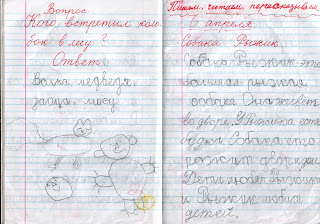 Вопрос
Кого встретил коло-
бок в лесу?
Ответ.
Волка, медведя,
зайца, лису
Пишем, читаем, пересказываем
6 апреля
Собака Рыжик
Собака Рыжик это
большая рыжая
собака Она живет
во дворе. У Рыжика есть
будка Собака сто
рожит двор
Дети любят Рыжика
и Рыжик любит
детей.